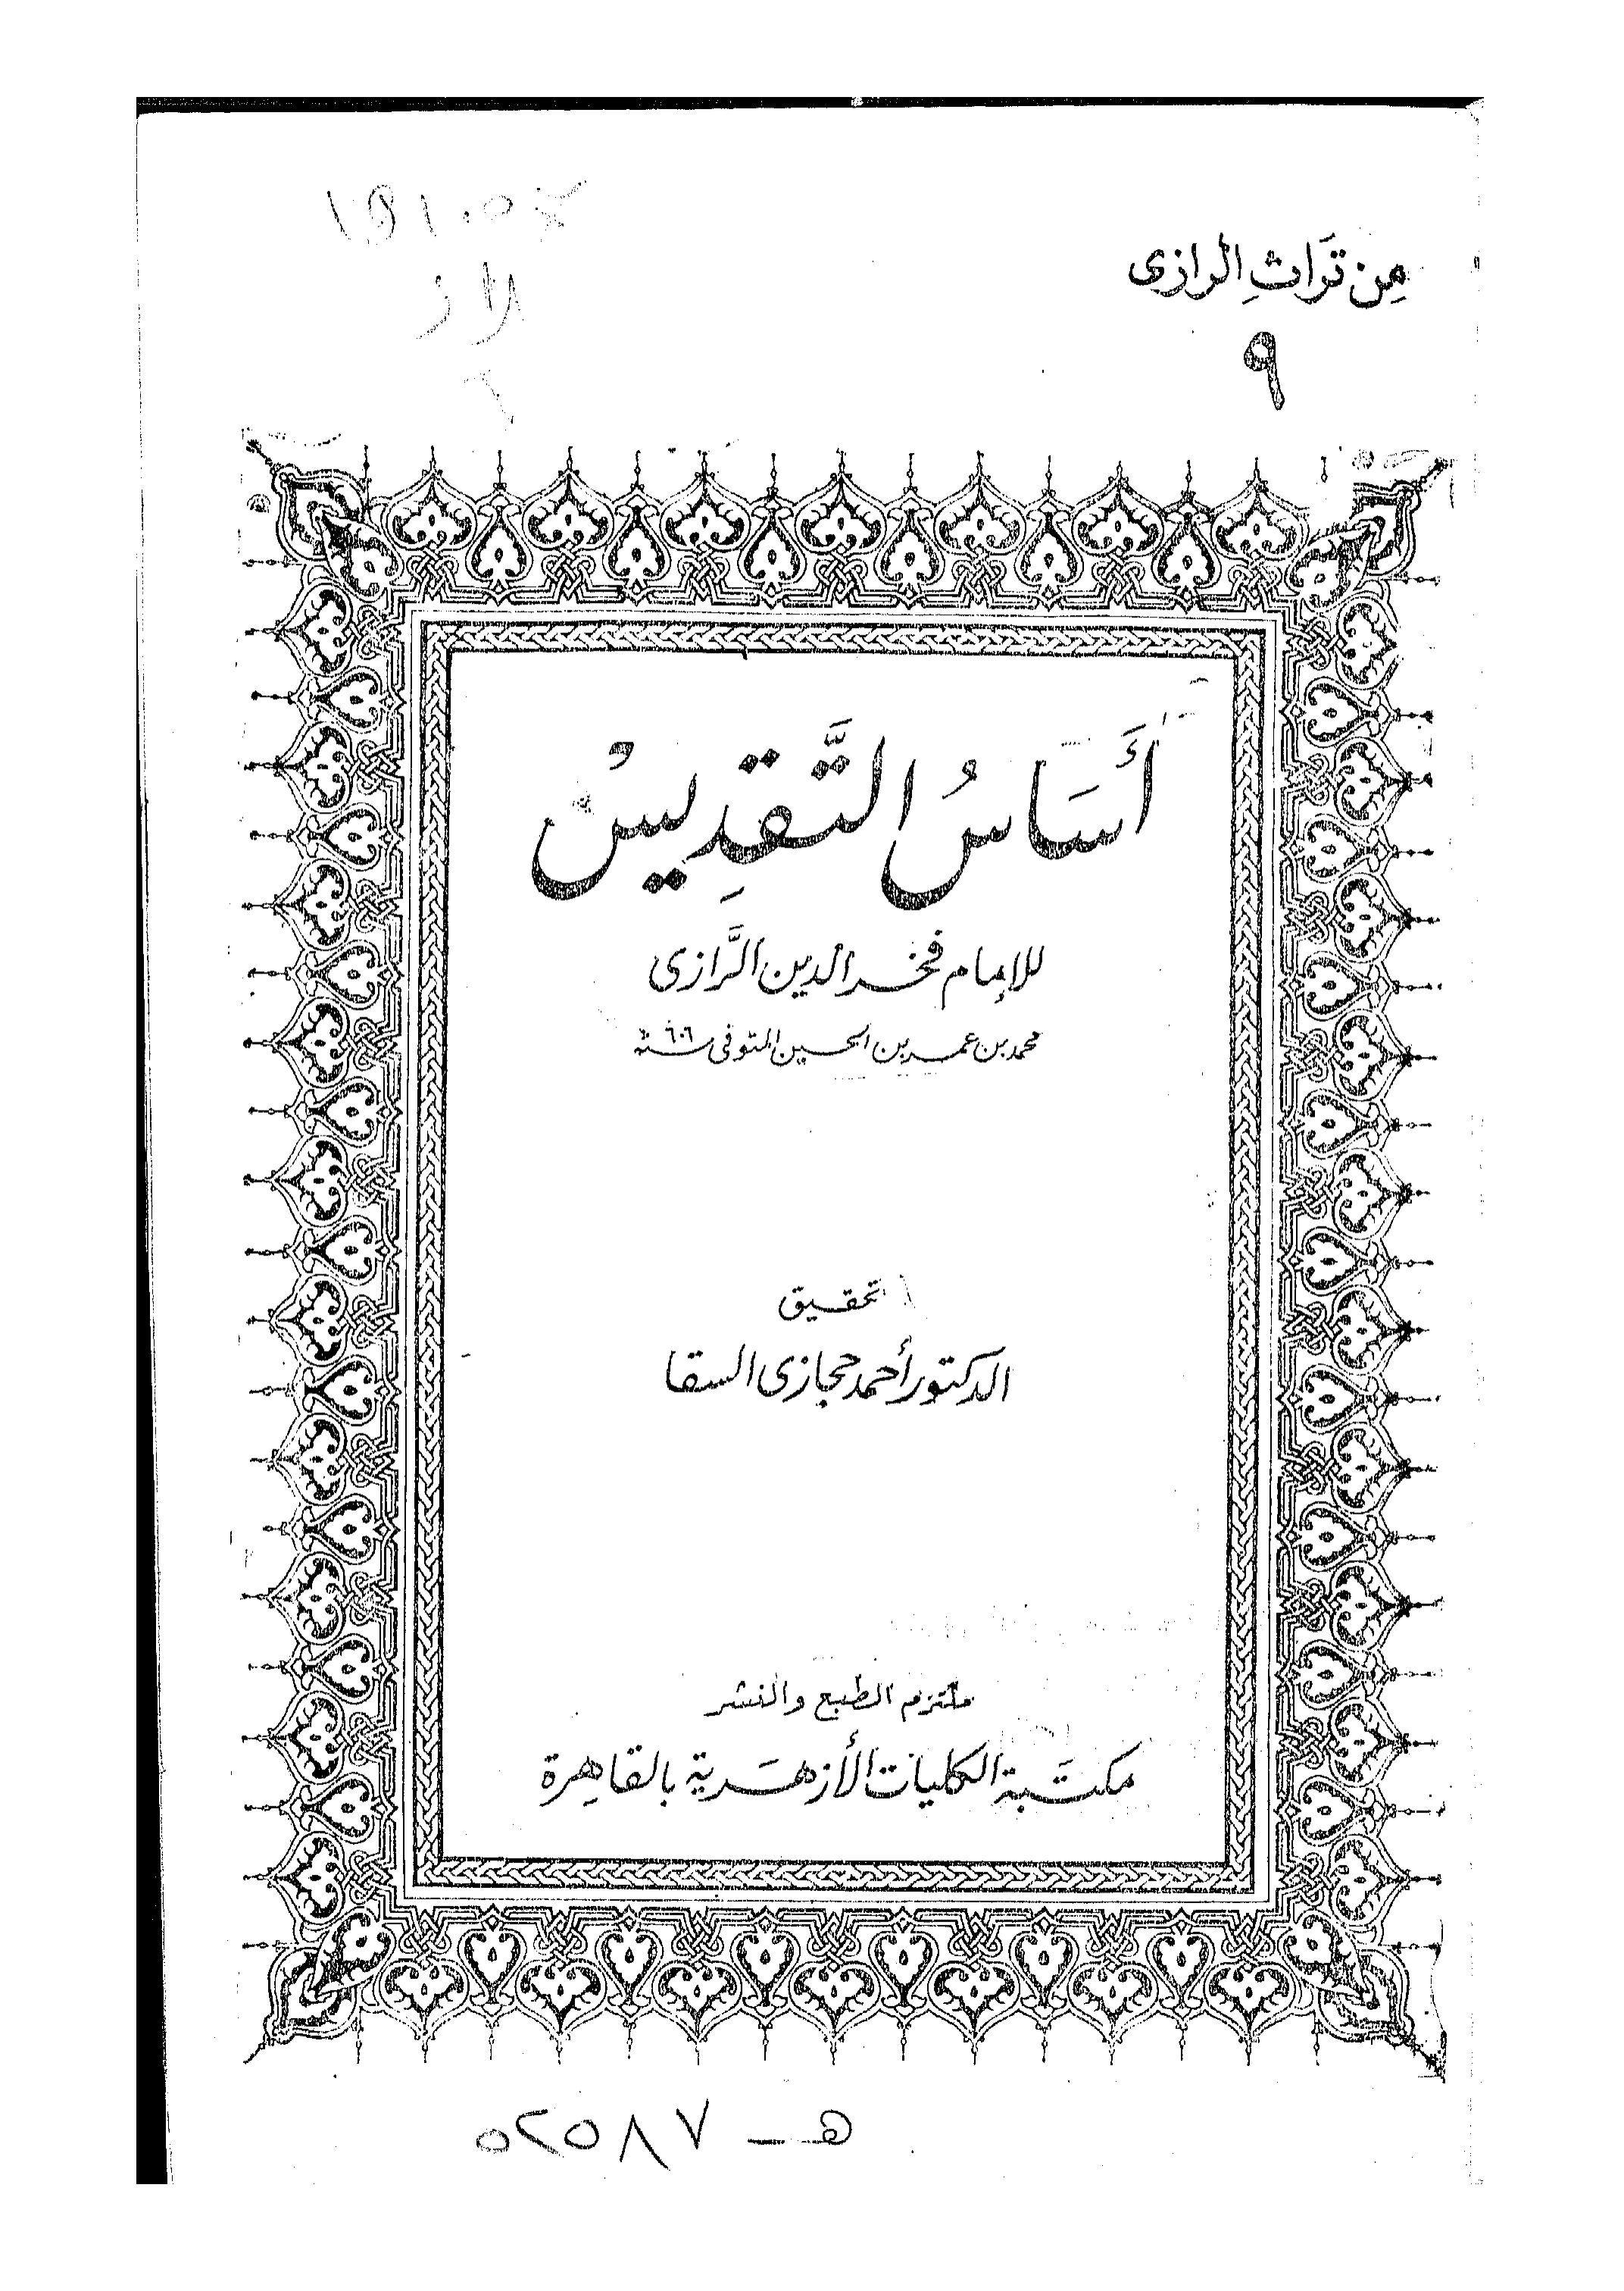 من تراث الرازى
٩
أَسَاسُ التَّقْدِيسْ
للإمام فخر الدين الرَّازى
محمد بن عمر بن الحسين المتوفى سنة ٦٠٦
تحقيق
الدكتور أحمد حجازى السقا
ملتزم الطبع والنشر
مكتبة الكليات الأزهرية بالقاهرة